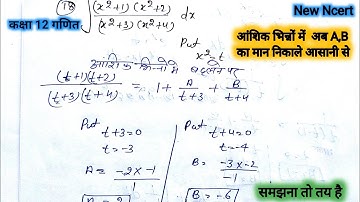 New Ncert
कक्षा 12 गणित
(18) ∫ (x²+1) (x²+2) / (x²+3) (x²+4) dx
Put
x² = t
आंशिक भिन्नों में अब A,B
का मान निकाले आसानी से
आंशिक भिन्नो मे बदलने पर
(t+1)(t+2) / (t+3)(t+4) = 1 + A/t+3 + B/t+4
Put
t+3=0
t=-3
A = -2×-1 / 1
Put
t+4=0
t=-4
B = -3×-2 / -1
B = -6
समझना तो तय है